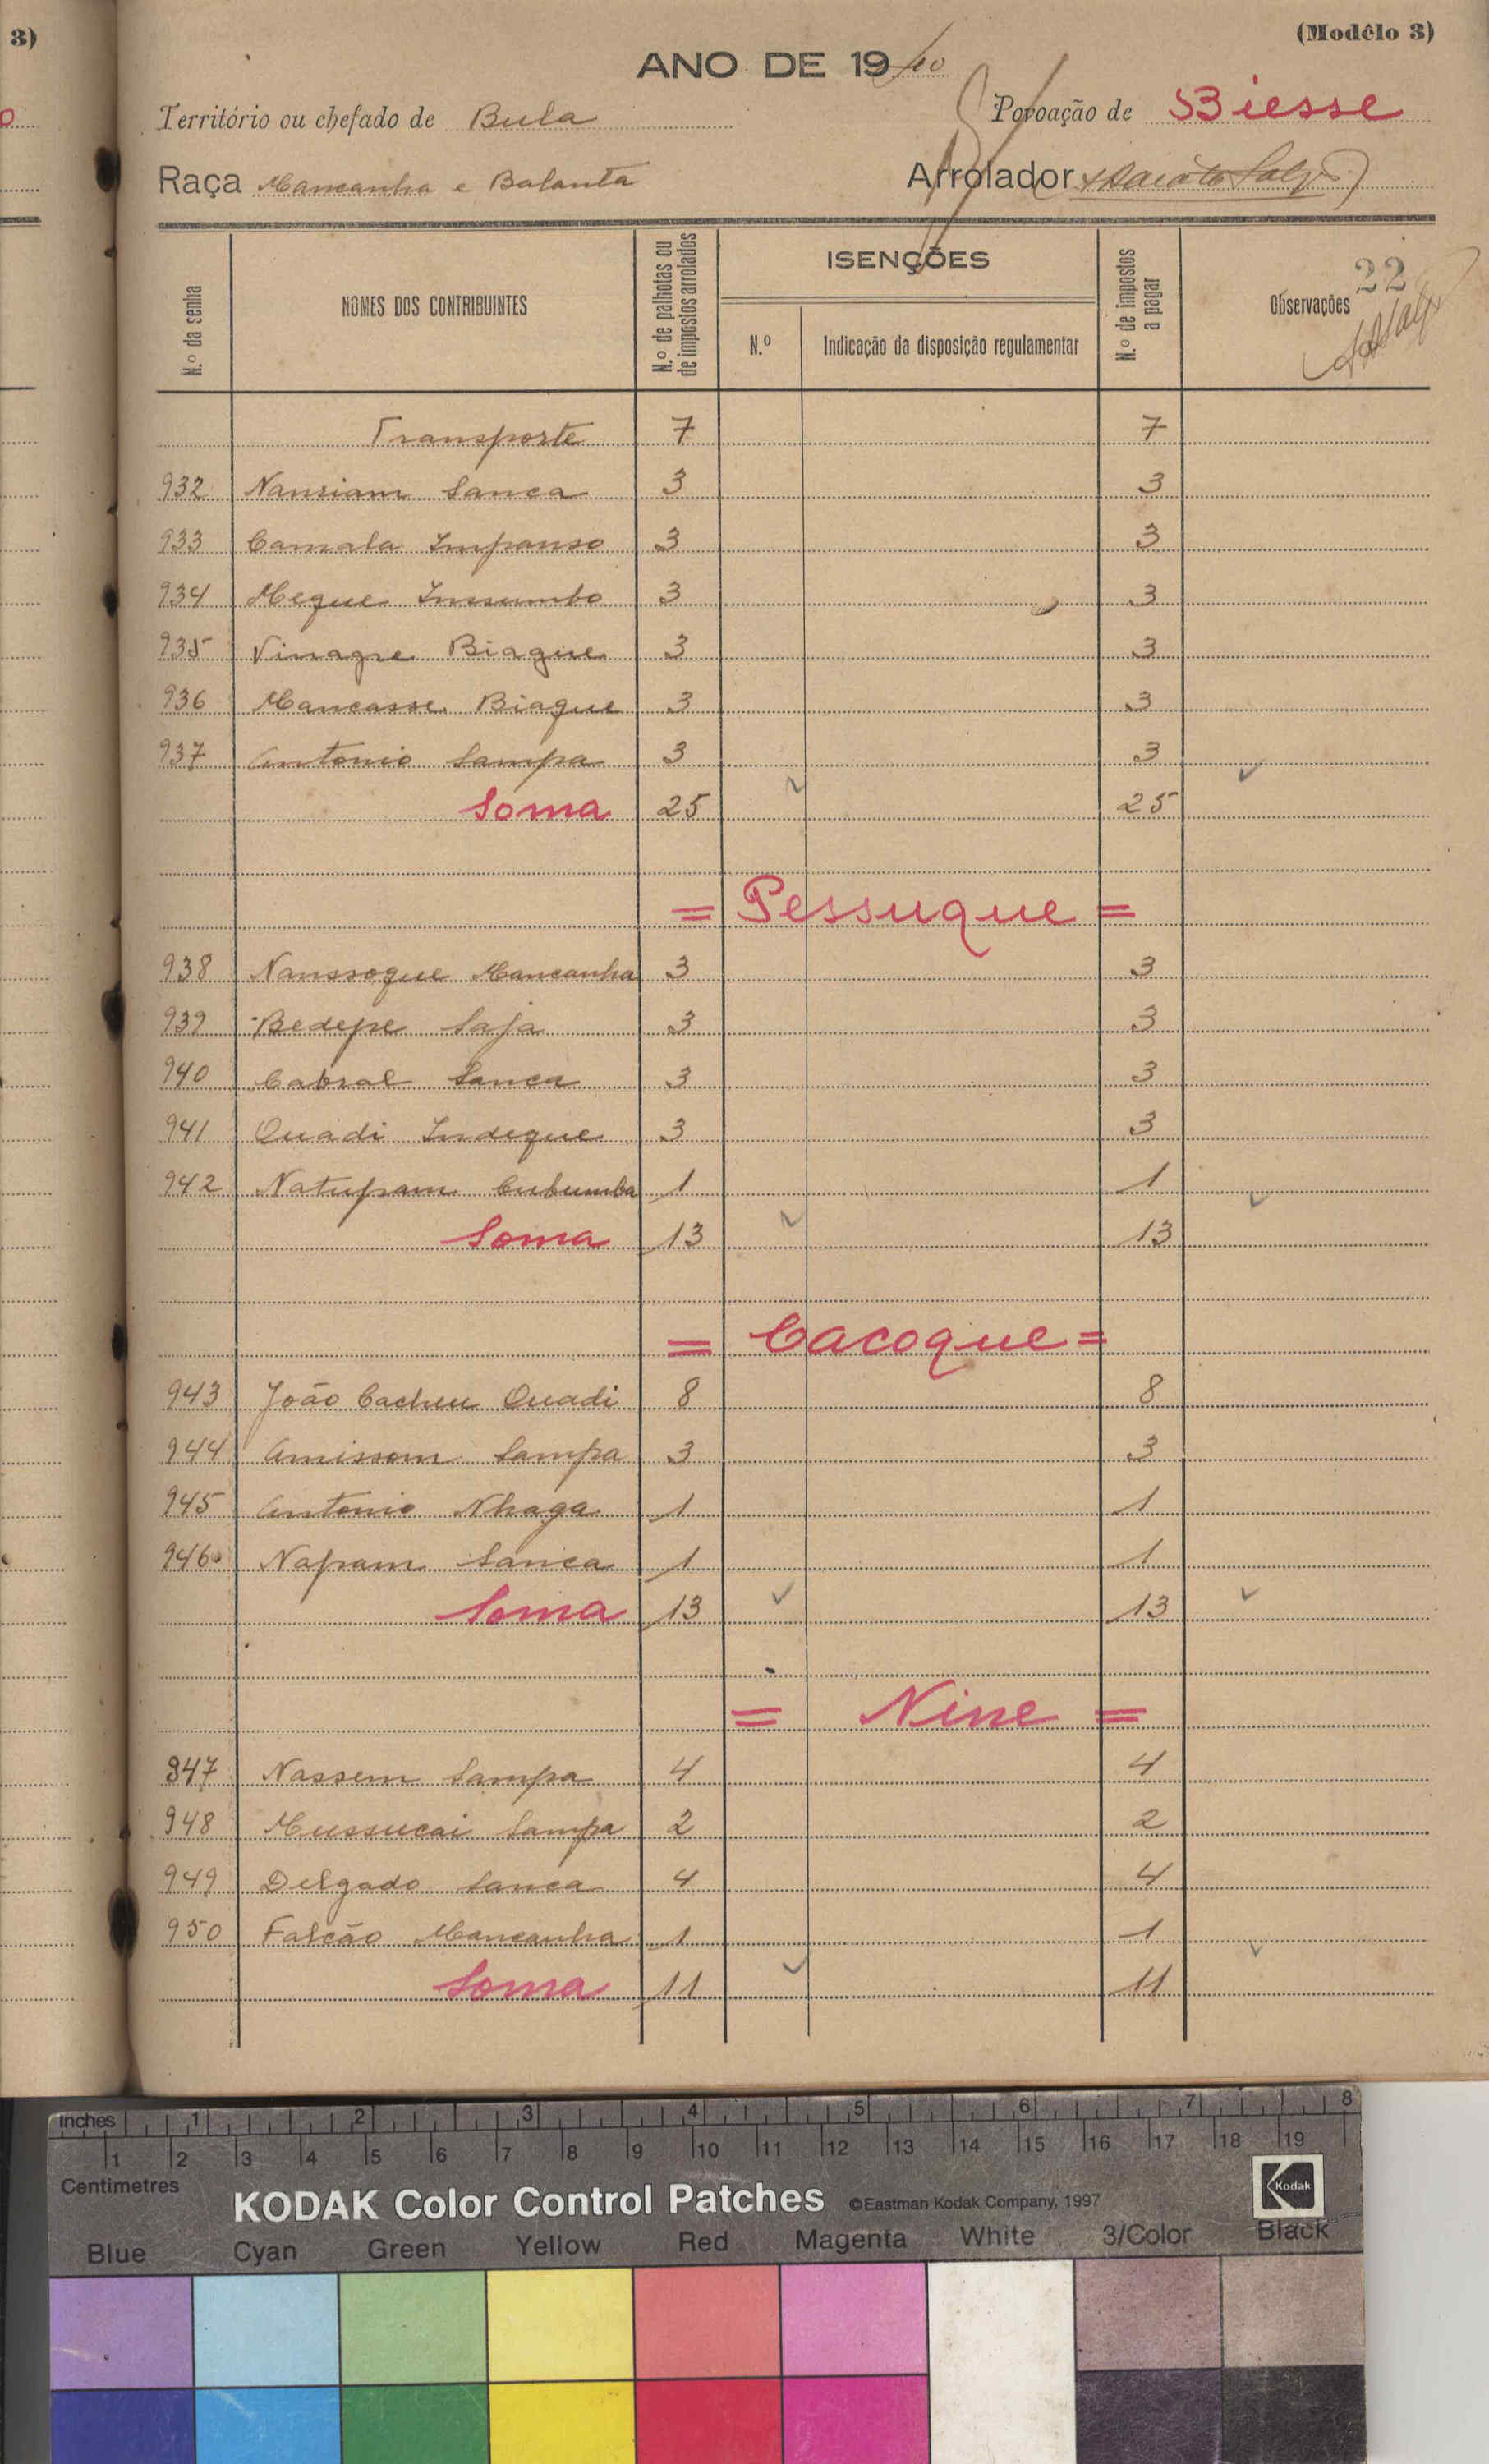 3)
(Modêlo 3)
ANO DE 1940
Território ou chefado de Bula
Povoação de Biesse
Raça Mancanha e Balanta
Arrolador
N.º da senha
NOMES DOS CONTRIBUINTES
N.º de palhotas ou de impostos arrolados
ISENÇÕES
N.º
Indicação da disposição regulamentar
N.º de impostos a pagar
Observações
22
Transporte 7 7
932 Nansiam Sanca 3 3
933 Camala Impanso 3 3
934 Meque Inssumbo 3 3
935 Vinagre Biague 3 3
936 Mancasse Biague 3 3
937 Antonio Sampa 3 3
Soma 25 25
= Pessuque =
938 Nanssoque Mancanha 3 3
939 Bedepe Saja 3 3
940 Cabral Sanca 3 3
941 Quadi Indeque 3 3
942 Natupam Cubumba 1 1
Soma 13 13
= Cacoque =
943 João Cacheu Quadi 8 8
944 Amissom Sampa 3 3
945 Antonio Nhaga 1 1
946 Napam Sanca 1 1
Soma 13 13
= Nine =
947 Nassem Sampa 4 4
948 Mussucai Sampa 2 2
949 Delgado Sanca 4 4
950 Falcão Mancanha 1 1
Soma 11 11
Inches 1 2 3 4 5 6 7 8
1 2 3 4 5 6 7 8 9 10 11 12 13 14 15 16 17 18 19
Centimetres
KODAK Color Control Patches ©Eastman Kodak Company, 1997 Kodak
Blue Cyan Green Yellow Red Magenta White 3/Color Black